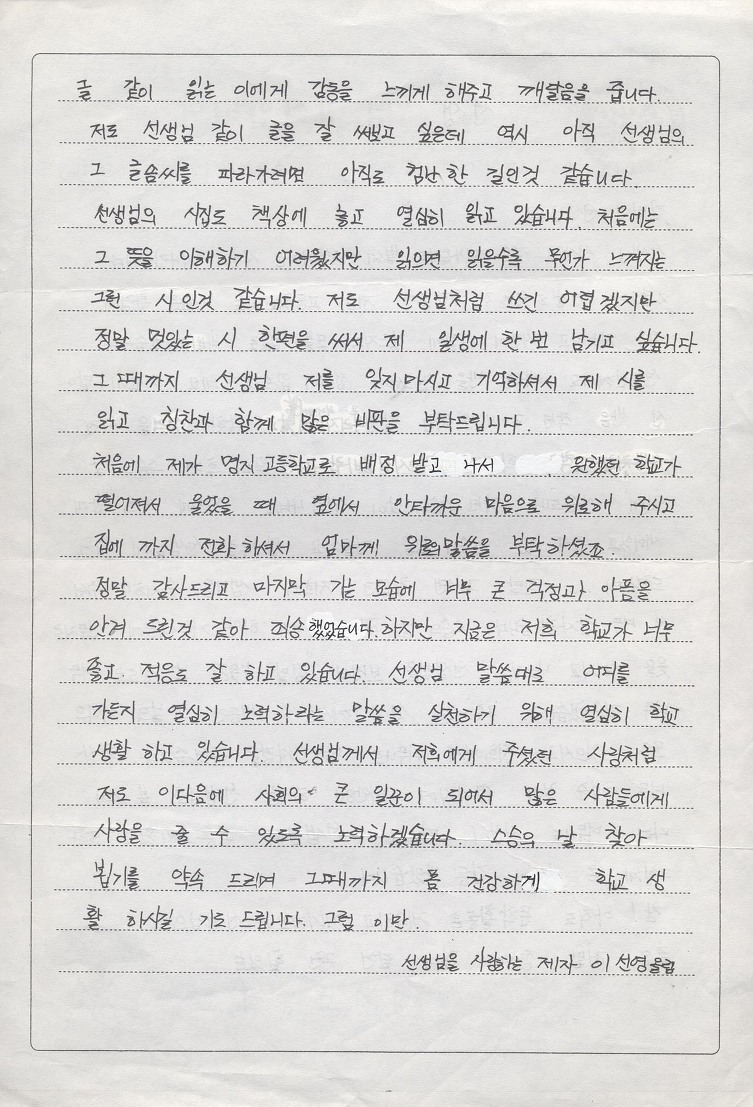 글 같이 읽는 이에게 감동을 느끼게 해주고 깨달음을 줍니다.
저도 선생님 같이 글을 잘 써보고 싶은데 역시 아직 선생님의
그 글솜씨를 따라가려면 아직도 험난한 길인것 같습니다.
선생님의 시집도 책상에 놓고 열심히 읽고 있습니다. 처음에는
그 뜻을 이해하기 어려웠지만 읽으면 읽을수록 무언가 느껴지는
그런 시인것 같습니다. 저도 선생님처럼 쓰긴 어렵겠지만
정말 멋있는 시 한편을 써서 제 일생에 한번 남기고 싶습니다.
그때까지 선생님 저를 잊지마시고 기억하셔서 제 시를
읽고 칭찬과 함께 많은 비판을 부탁드립니다.
처음에 제가 명지고등학교로 배정 받고 나서 원했던 학교가
떨어져서 울었을 때 옆에서 안타까운 마음으로 위로해 주시고
집에 까지 전화하셔서 엄마께 위로의말씀을 부탁하셨죠.
정말 감사드리고 마지막 가는 모습에 너무 큰 걱정과 아픔을
안겨 드린것 같아 죄송했었습니다. 하지만 지금은 저희 학교가 너무
좋고 적응도 잘 하고 있습니다. 선생님 말씀대로 어디를
가든지 열심히 노력하라는 말씀을 실천하기 위해 열심히 학교
생활 하고 있습니다. 선생님께서 저희에게 주셨던 사랑처럼
저도 이다음에 사회의 큰 일꾼이 되어서 많은 사람들에게
사랑을 줄 수 있도록 노력하겠습니다. 스승의 날 찾아
뵙기를 약속 드리며 그때까지 몸 건강하게 학교 생
활 하시길 기도 드립니다. 그럼 이만.
선생님을 사랑하는 제자 이선영올림